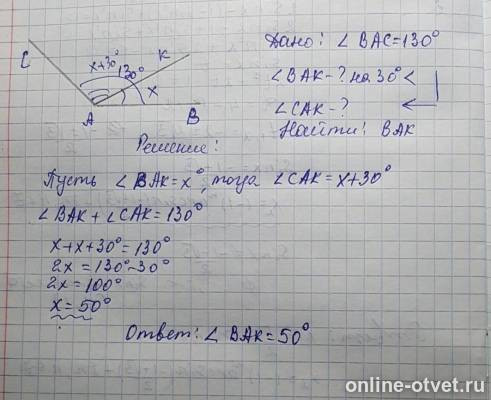 Дано: ∠ BAC = 130°
∠ BAK - ? на 30° <
∠ CAK - ?
Найти: BAK
C
x+30°
130°
K
x
A
B
Решение:
Пусть ∠ BAK = x°, тогда ∠ CAK = x+30°
∠ BAK + ∠ CAK = 130°
x+x+30° = 130°
2x = 130°-30°
2x = 100°
x = 50°
Ответ: ∠ BAK = 50°
online-otvet.ru